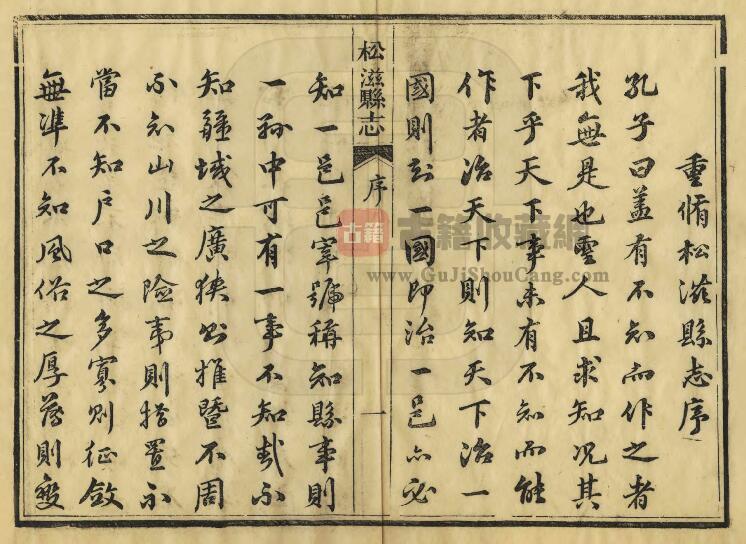 重脩松滋縣志序
孔子曰蓋有不知而作之者
我無是也聖人且求知况其
下乎天下事未有不知而能
作者治天下則知天下治一
國則知一國即治一邑亦必
松滋縣志 序 一
知一邑邑宰號稱知縣事則
一縣中可有一事不知哉不
知疆域之廣狹則推暨不周
不知山川之險夷則措置不
當不知户口之多寡則征斂
無準不知風俗之厚薄則變
古籍 古籍收藏網
www.GuJiShouCang.com